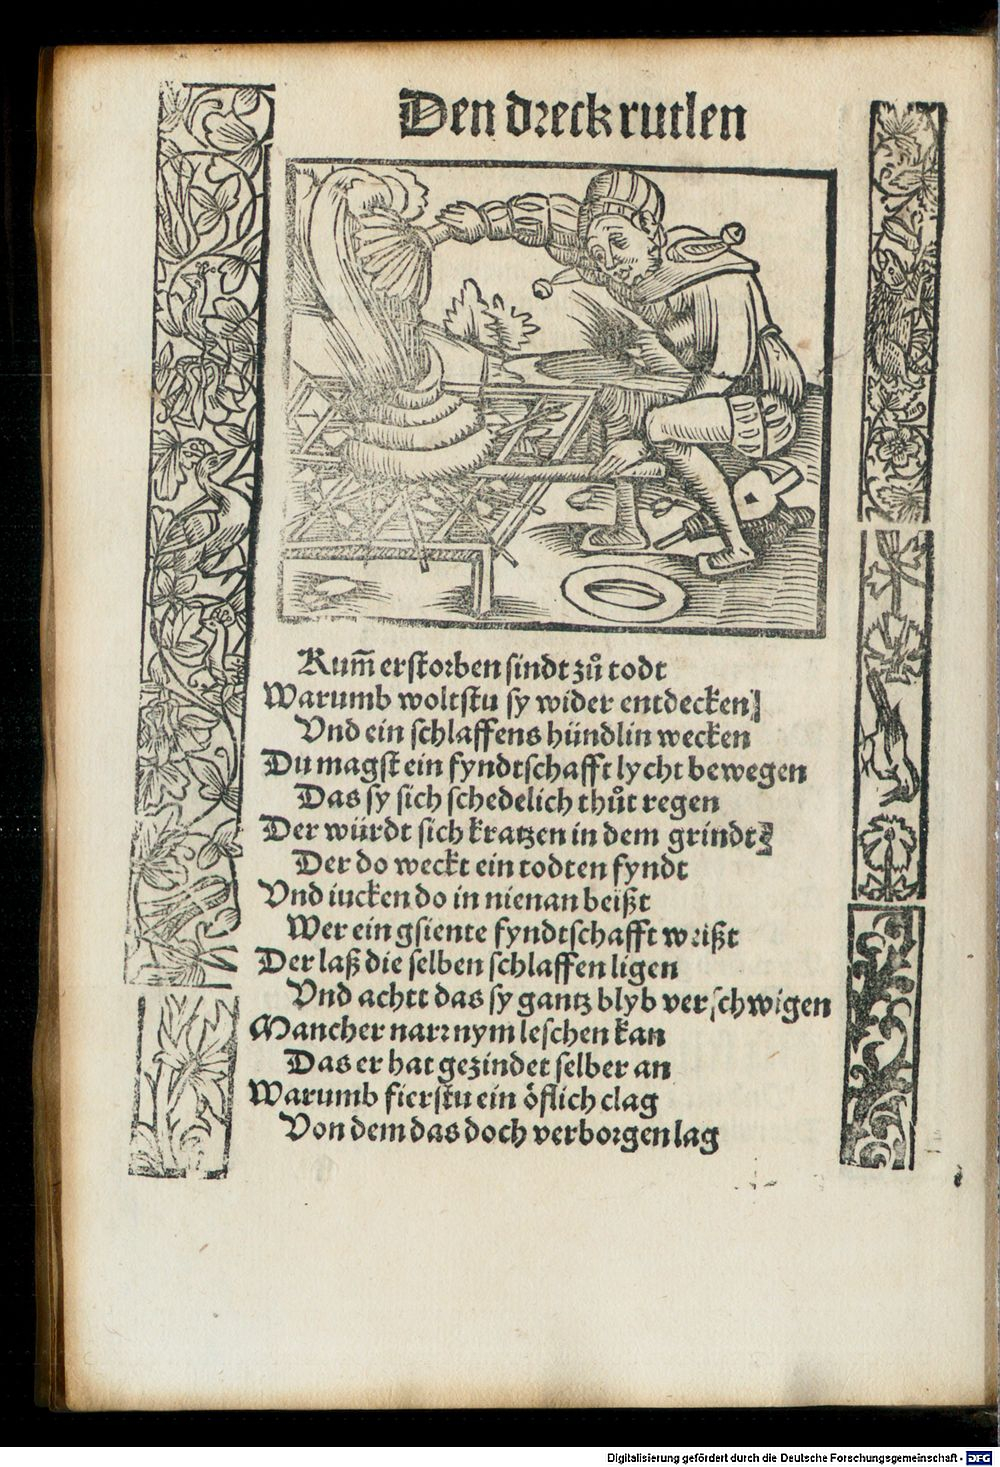 Den dreck rutlen
Kum̄ erstorben sindt zů todt
Warumb woltstu sy wider entdecken
Vnd ein schlaffens hündlin wecken
Du magst ein fyndtschafft lycht bewegen
Das sy sich schedelich thůt regen
Der würdt sich kratzen in dem grindt
Der do weckt ein todten fyndt
Vnd iucken do in nienan beißt
Wer ein gsiente fyndtschafft weißt
Der laß die selben schlaffen ligen
Vnd achtt das sy gantz blyb verschwigen
Mancher narr nym leschen kan
Das er hat gezindet selber an
Warumb fierstu ein öflich clag
Von dem das doch verborgen lag
Digitalisierung gefördert durch die Deutsche Forschungsgemeinschaft - DFG